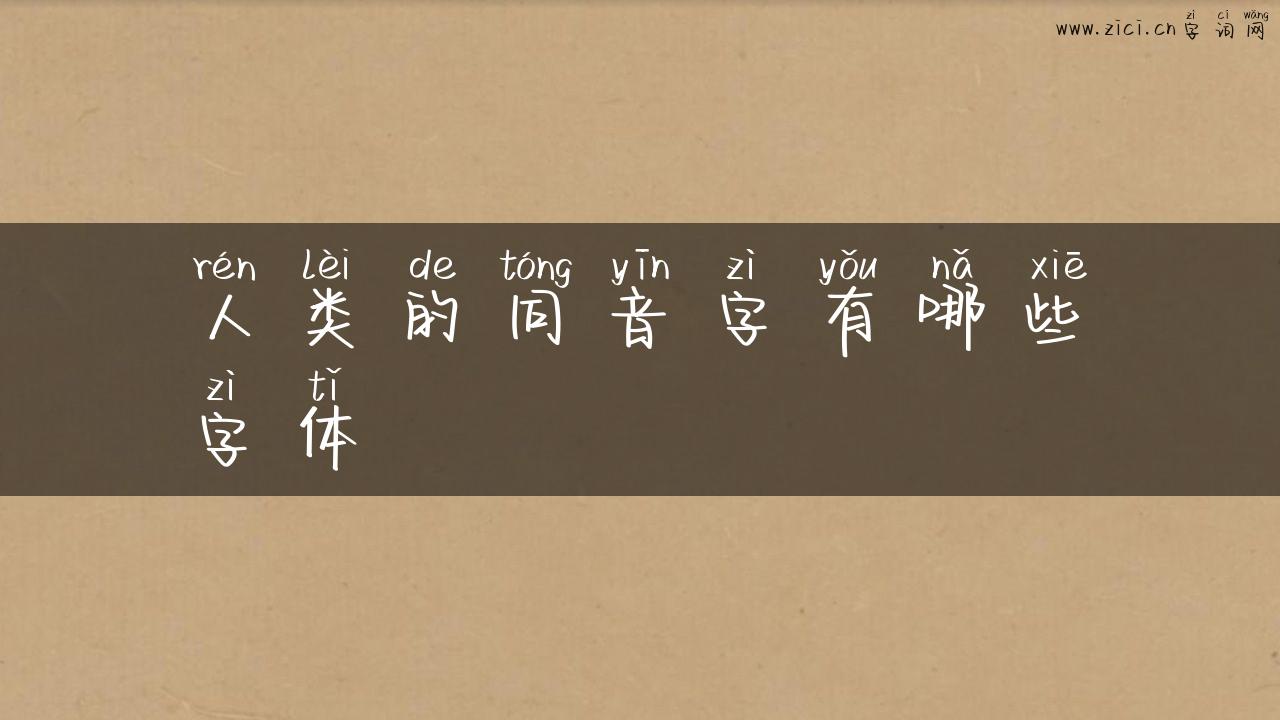 zì cí wǎng
www.zici.cn 字词网
rén lèi de tóng yīn zì yǒu nǎ xiē
人类的同音字有哪些
zì tǐ
字体